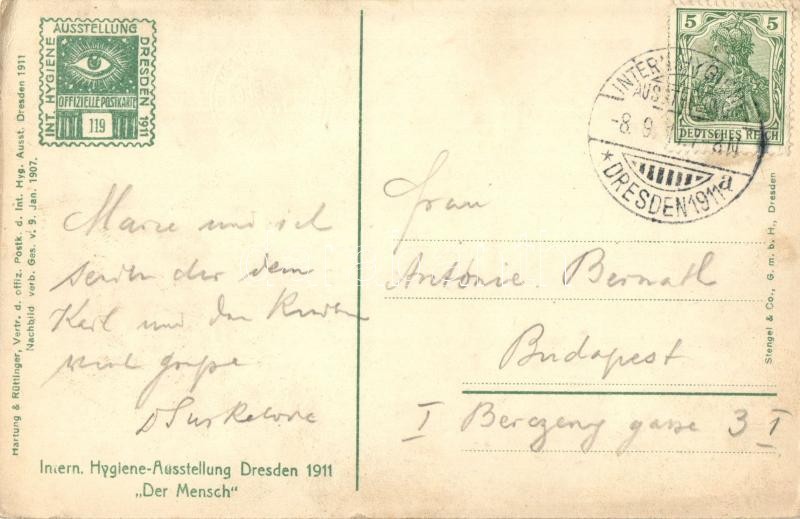 INT. HYGIENE
AUSSTELLUNG
DRESDEN 1911
OFFIZIELLE POSTKARTE
119
5 5
DEUTSCHES REICH
INTERN. HYGIENE
-8.9.
★DRESDEN 1911 a
Hartung & Rüttinger, Vertr. d. offiz. Postk. d. Int. Hyg. Ausst. Dresden 1911
Nachbild verb. Ges. v. 9. Jan. 1907.
Marie und ich
der dem
Karl und den
viel
Intern. Hygiene-Ausstellung Dresden 1911
„Der Mensch“
Frau
Antonie Bernath
Budapest
I gasse 3 I
Stengel & Co., G. m. b. H., Dresden